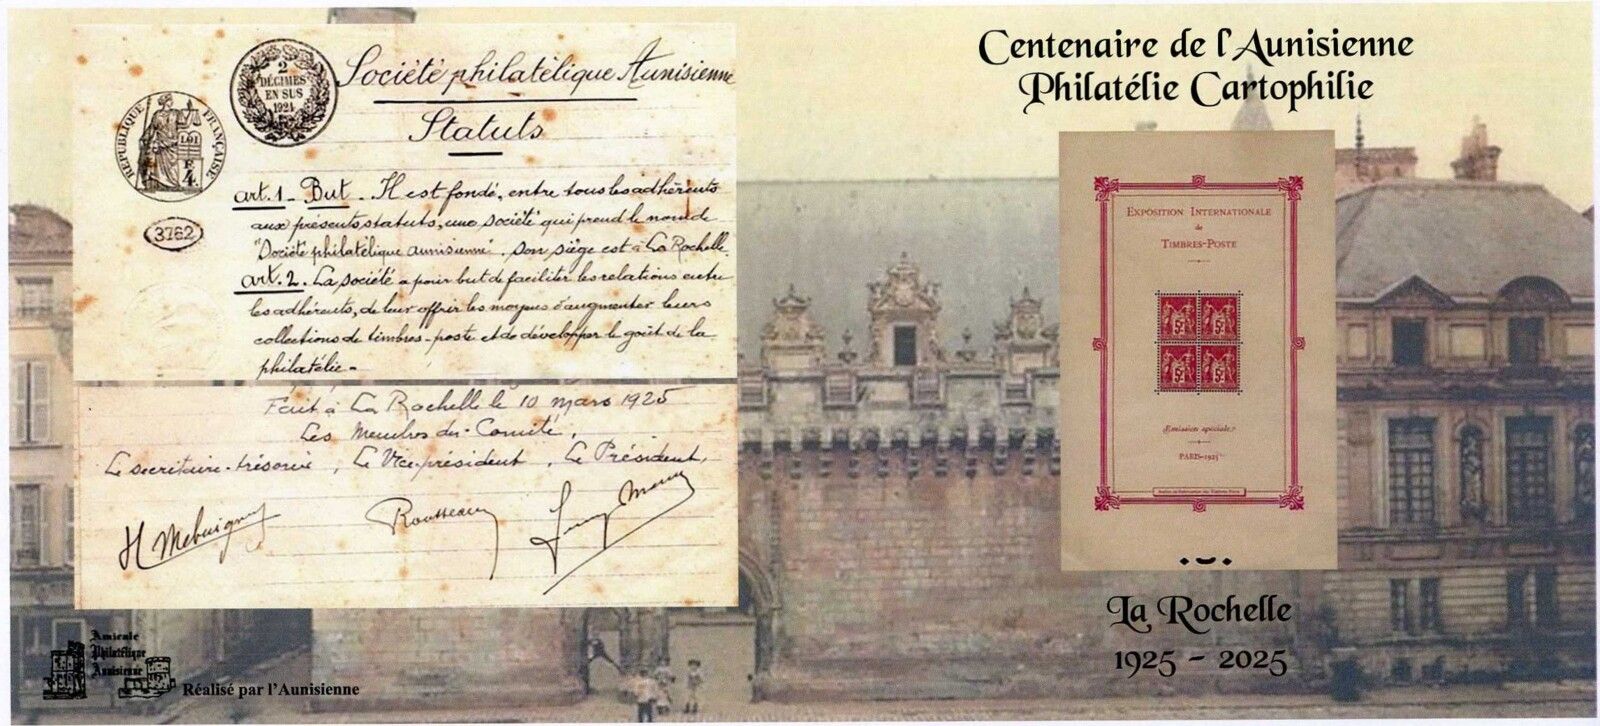 Société philatélique Aunisienne
Statuts
2
DÉCIMES
EN SUS
1921
RÉPUBLIQUE FRANÇAISE
LOI
F
4
3762
art. 1 - But - Il est fondé, entre tous les adhérents
aux présents statuts, une société qui prend le nom de
"Société philatélique aunisienne". Son siège est à La Rochelle.
art. 2. La société a pour but de faciliter les relations entre
les adhérents, de leur offrir les moyens d'augmenter leurs
collections de timbres-poste et de développer le goût de la
philatélie -
Fait à La Rochelle le 10 mars 1925
Les Membres du Comité,
Le secrétaire-trésorier, Le Vice-président, Le Président,
Rousseau
Amicale
Philatélique
Aunisienne
Réalisé par l'Aunisienne
Centenaire de l'Aunisienne
Philatélie Cartophilie
EXPOSITION INTERNATIONALE
de
TIMBRES-POSTE
5F 5F
5F 5F
Emission spéciale
PARIS-1925
Atelier de Fabrication des Timbres-Poste
La Rochelle
1925 - 2025